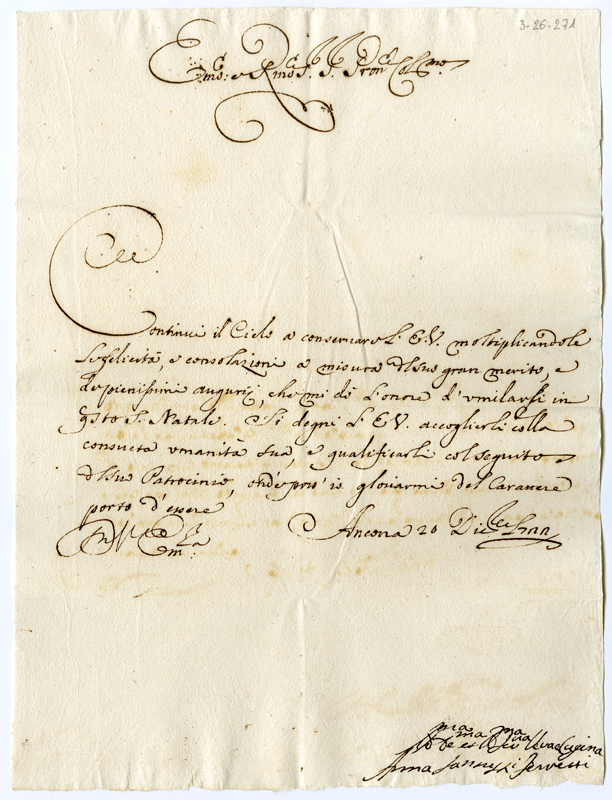 3-26-271
Emo: e Rmo S. S. Pron Colmo
Continui il Cielo a conservare l'E.V. moltiplicandole
le felicità, e consolazioni a misura dl suo gran merito, e
de pienissimi augurij, che mi dò l'onore d'umilarle in
qsto S. Natale. Si degni l'E.V. accoglierli colla
consueta umanità sua, e qualificarli col seguito
dl suo Patrocinio, ond'è poss' io gloriarmi del Carattere
porto d'essere
Di V. Ema
Ancona 20 Dicebre
Anna